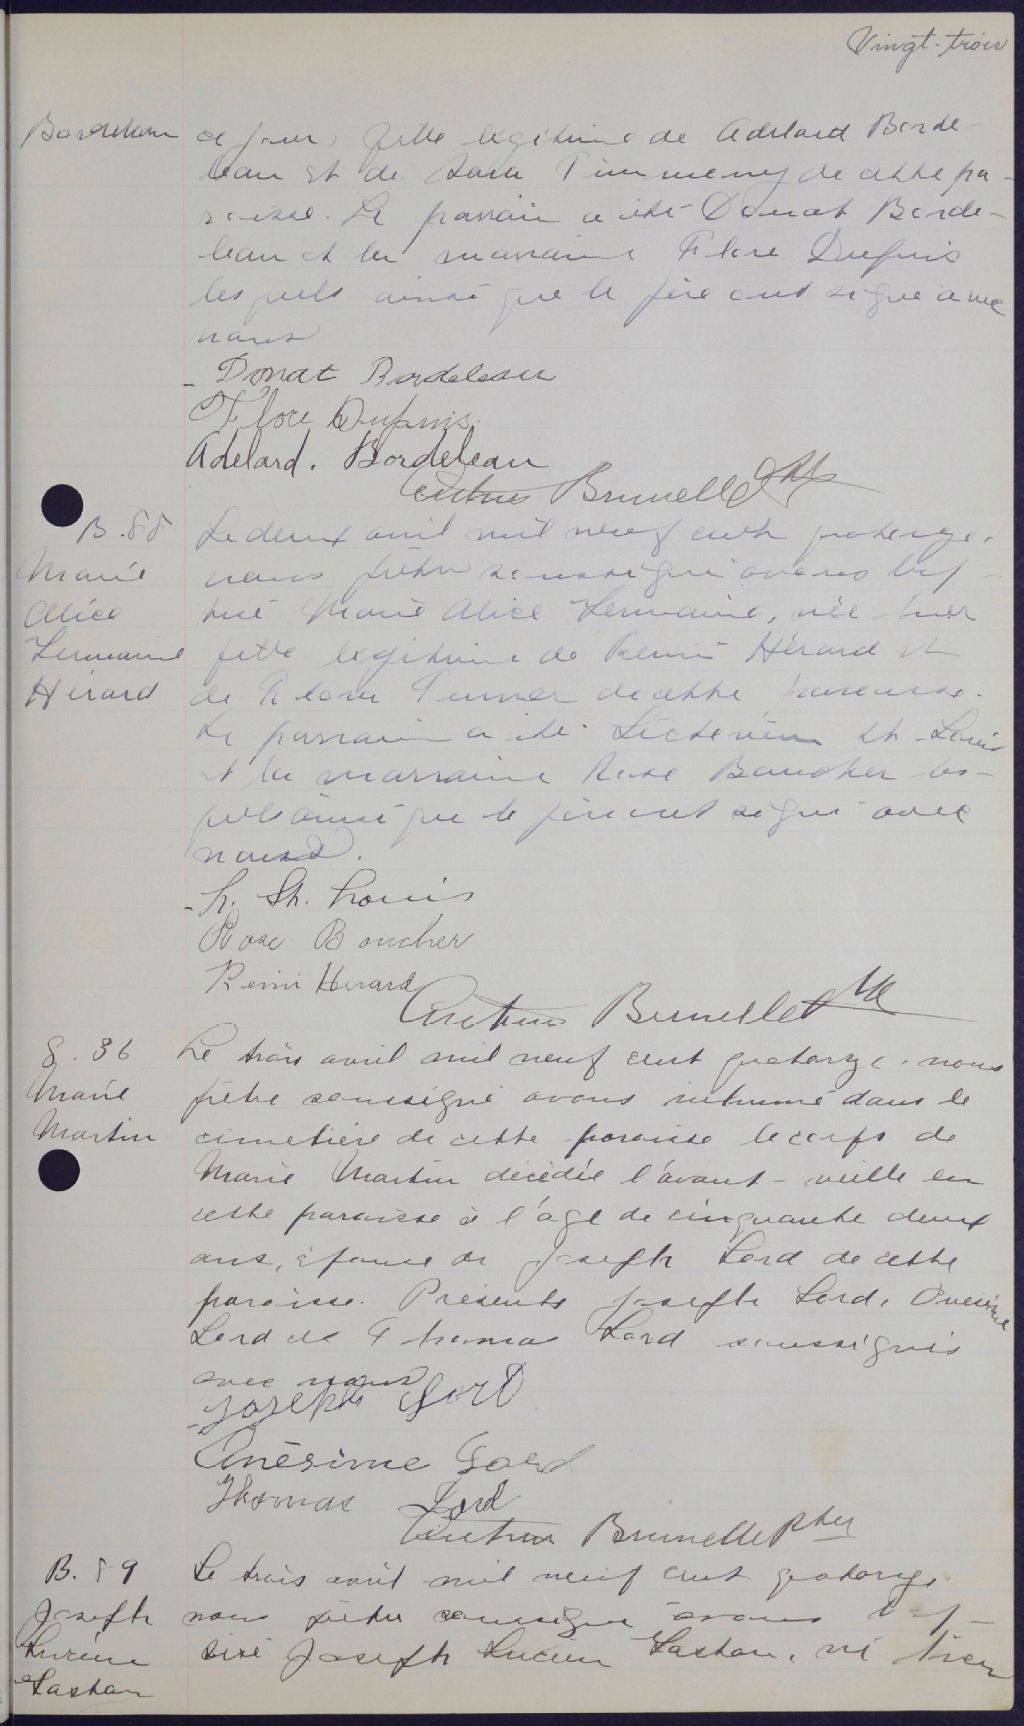 Vingt-trois
Bordeleau
ce jour, fille légitime de Adelard Borde-
leau et de Sara Timmeny de cette pa-
roisse. Le parrain a été Donat Borde-
leau et la marraine Flore Dupuis
lesquels ainsi que le père ont signé avec
nous
Donat Bordeleau
Flore Dupuis
Adelard. Bordeleau
Brunelle
B. 88
Marie
Alice
Germaine
Hérard
Le deux avril mil neuf cent quatorze,
nous prêtre soussigné avons bap-
tisé Marie Alice Germaine, née hier
fille légitime de Rémi Hérard et
de Flora Turner de cette paroisse.
Le parrain a été St-Louis
et la marraine Rose Boucher les-
quels ainsi que le père ont signé avec
nous.
L. St. Louis
Rose Boucher
Rémi Herard
Brunelle
S. 36
Marie
Martin
Le trois avril mil neuf cent quatorze, nous
prêtre soussigné avons inhumé dans le
cimetière de cette paroisse le corps de
Marie Martin décédée l'avant-veille en
cette paroisse à l'age de cinquante deux
ans, épouse de Joseph Lord de cette
paroisse. Présents Joseph Lord, Onésime
Lord et Thomas Lord soussignés
avec nous
Joseph Lord
Onésime Lord
Thomas Lord
Brunelle Ptre
B. 89
Joseph
Lucien
Le trois avril mil neuf cent quatorze
nous prêtre soussigné avons bap-
tisé Joseph Lucien né hier